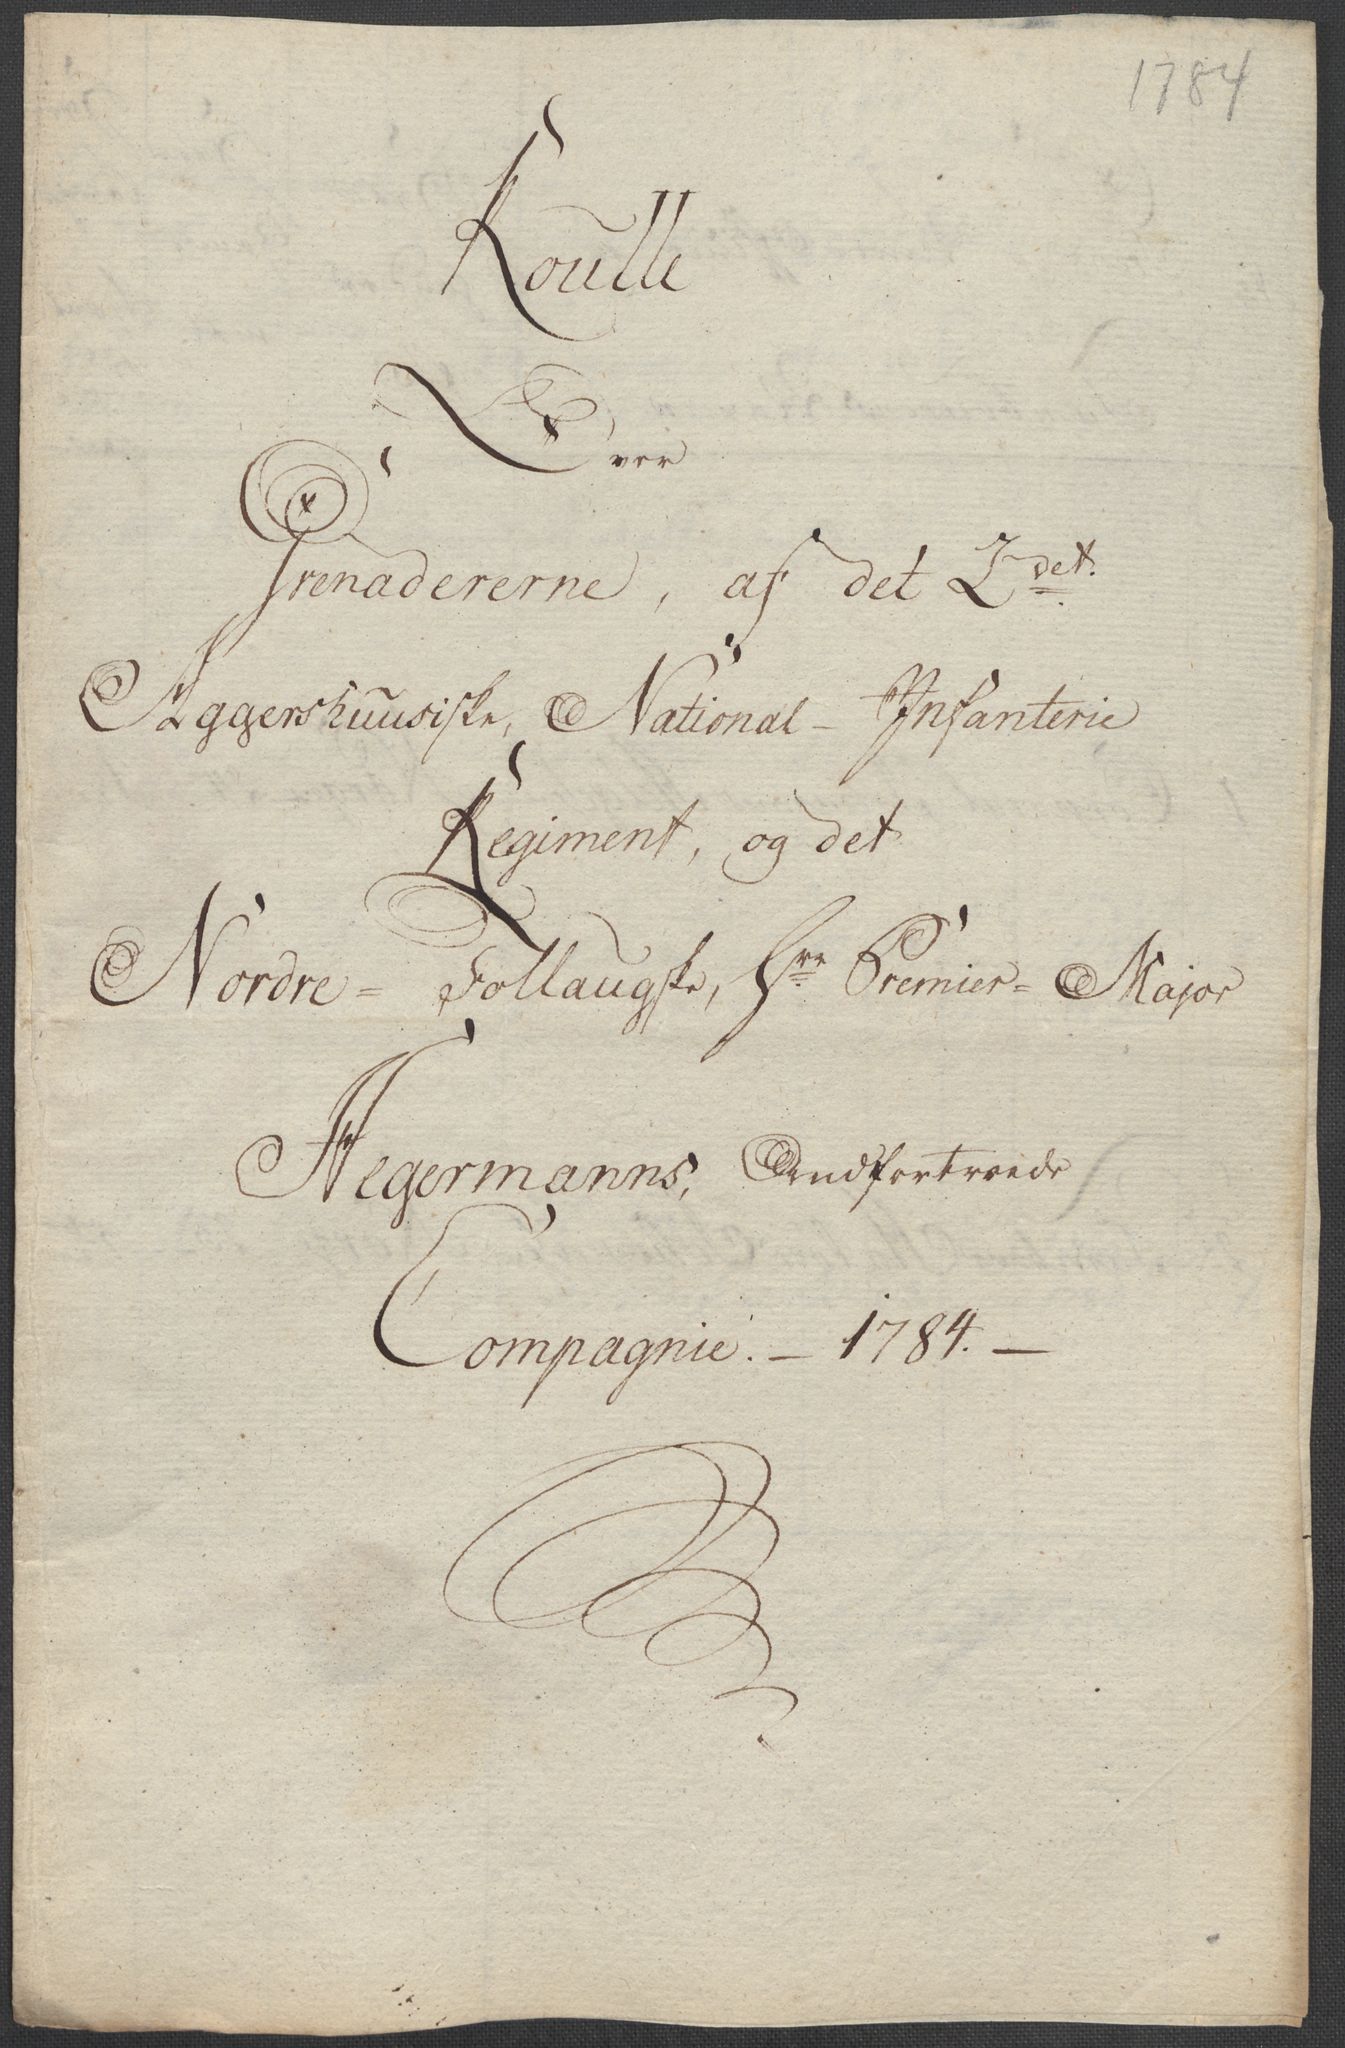 1784
Roulle
Over
Grenadererne, af det 2det.
Aggershuusiske, National- Infanterie
Regiment, og det
Nordre= Follaugske, Hre Premier= Major
Hegermanns, Andfortroede
Compagnie. – 1784. –